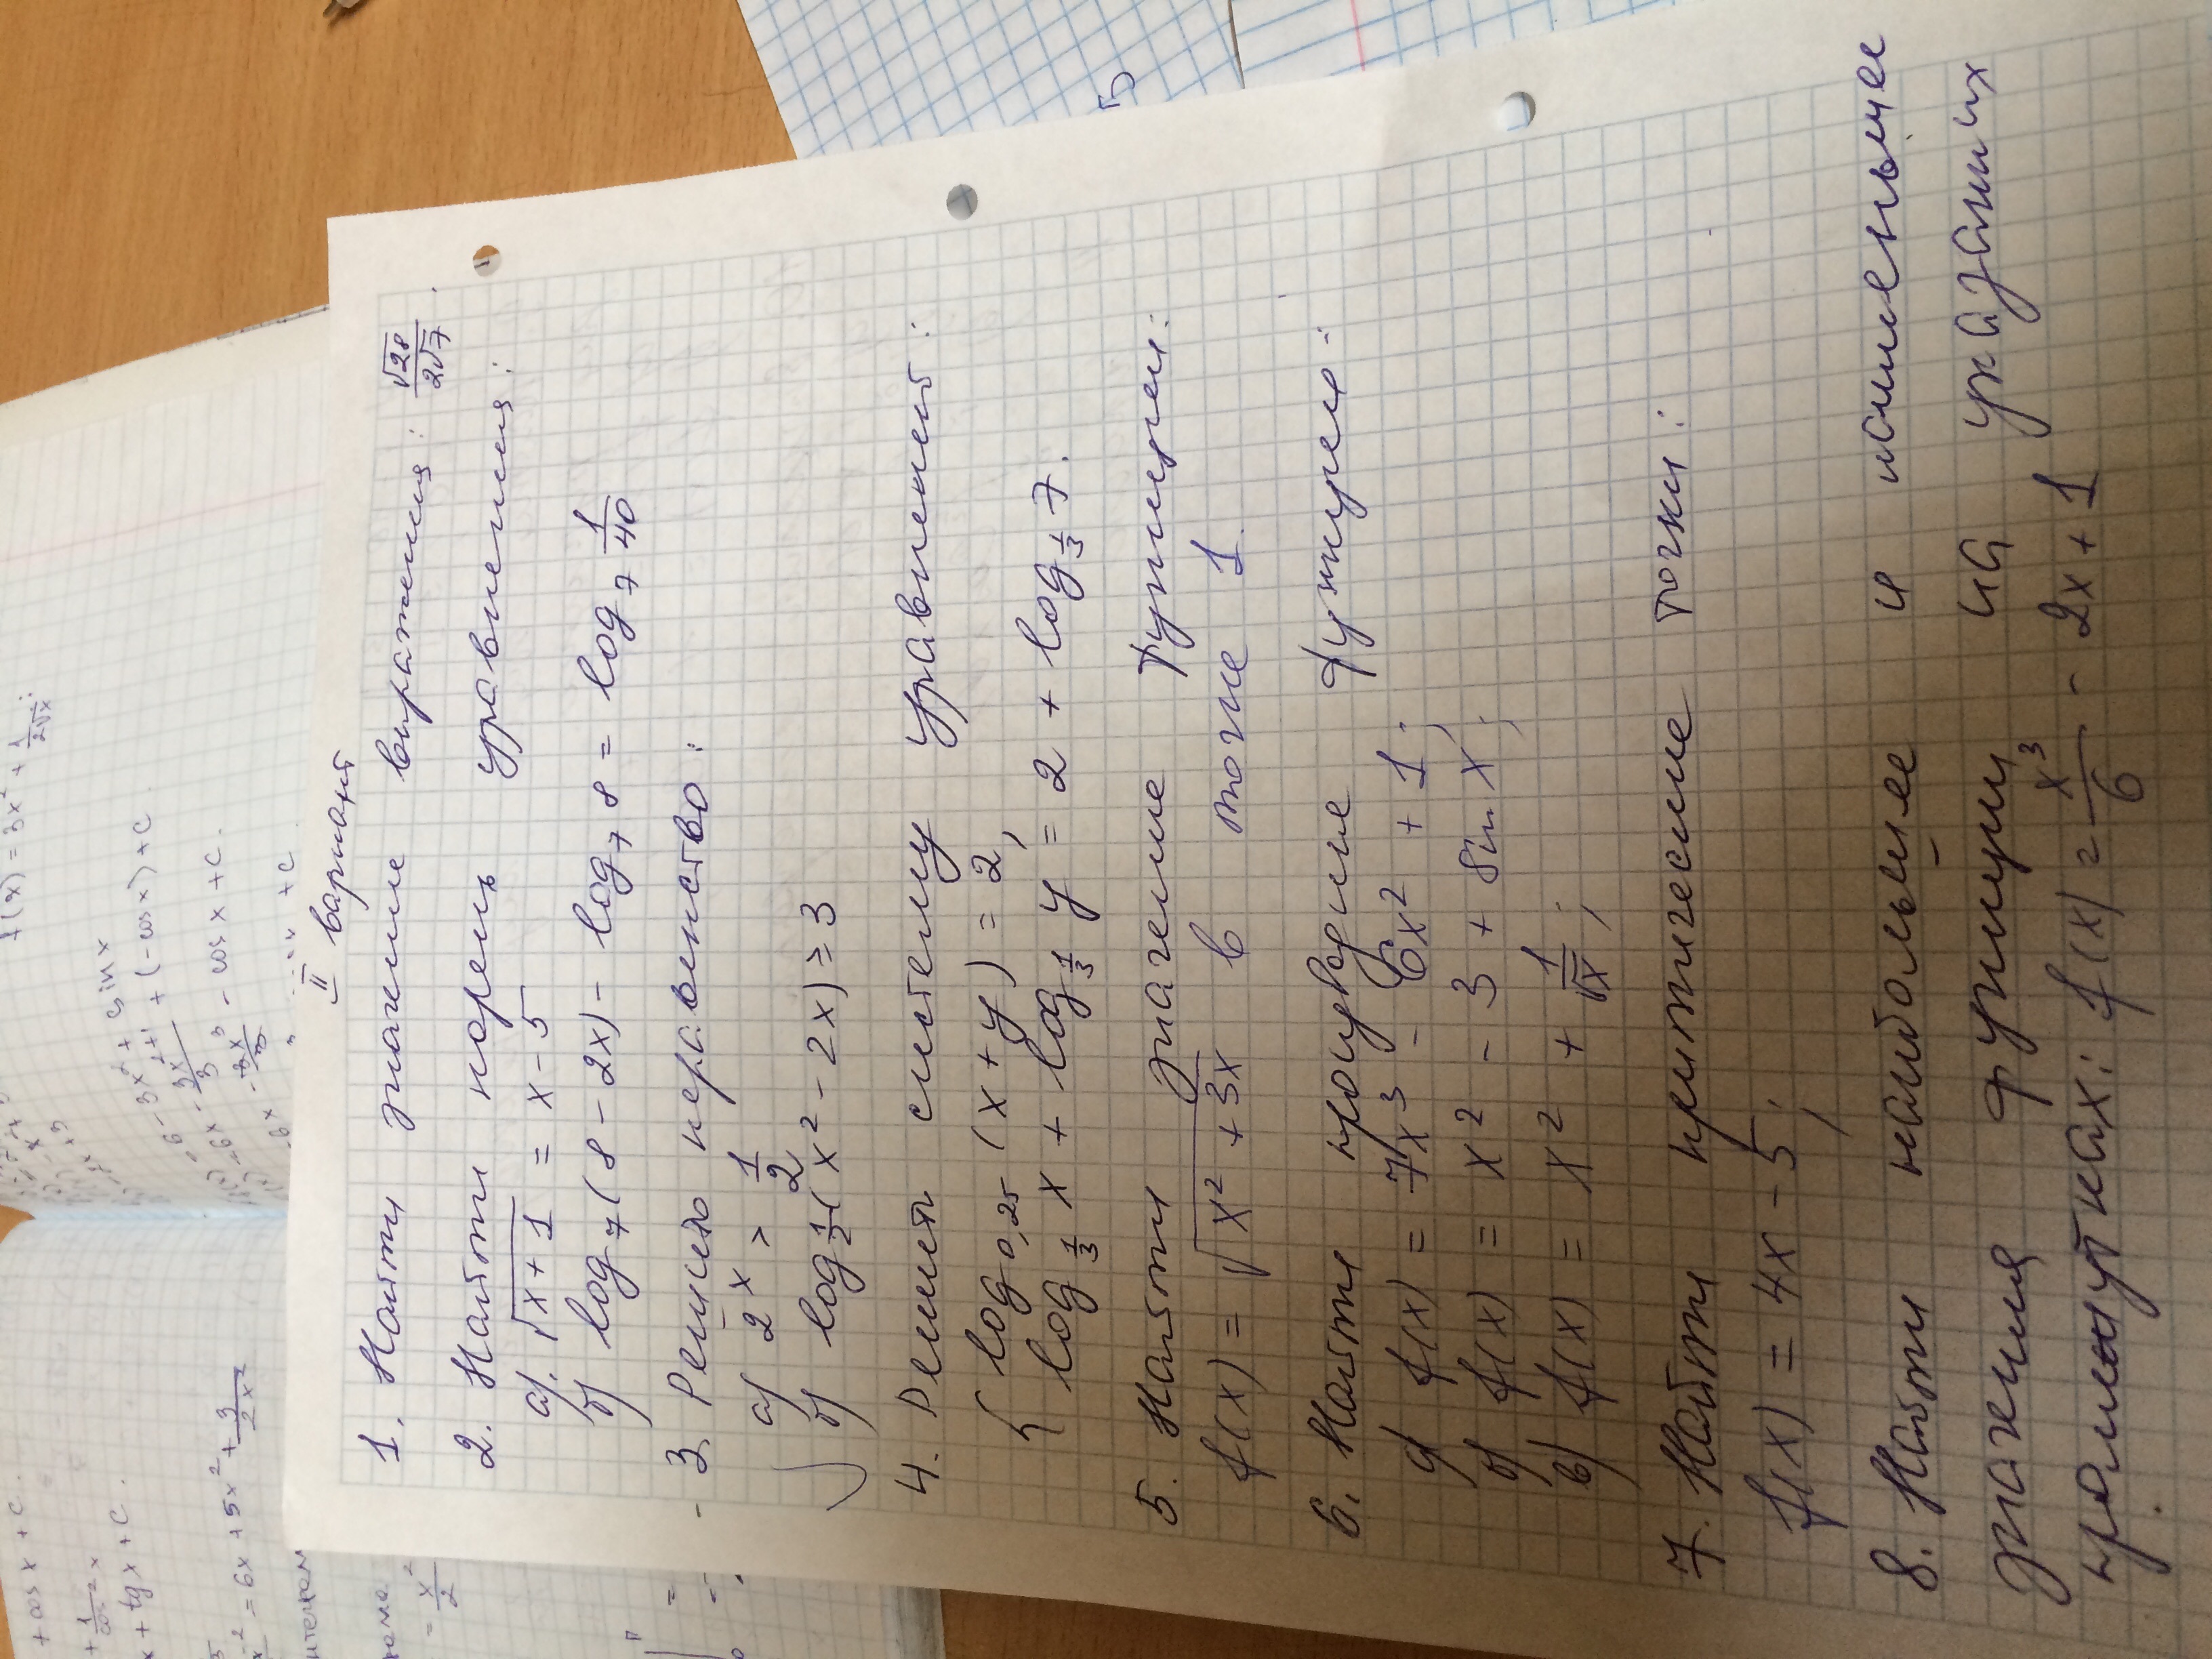 II вариант
1. Найти значение выражения: √28/2√7.
2. Найти корень уравнения:
а) √(x+1) = x - 5
б) log₇(8 - 2x) - log₇ 8 = log₇ 1/40
3. Решить неравенство:
а) 2ˣ > 1/2
б) log 1/2 (x² - 2x) ≥ 3
4. Решить систему уравнений:
{ log 0,25 (x + y) = 2,
log 1/3 x + log 1/3 y = 2 + log 1/3 7.
5. Найти значение функции:
f(x) = √(x² + 3x) в точке 1.
6. Найти производные функций:
а) f(x) = 7x³ - 6x² + 1;
б) f(x) = x² - 3 + sin x;
в) f(x) = x² + 1/√x;
7. Найти критические точки:
f(x) = 4x - 5;
8. Найти наибольшее и наименьшее
значения функции на указаных
промежутках: f(x) = x³/6 - 2x + 1
f(x) = 3x² + 1/2√x;
+ (-cos x) + c.
- cos x + c.
+ c
+ cos x + c.
x + tg x + c.
= 6x + 5x² + 3/2x²
= x²/2
5